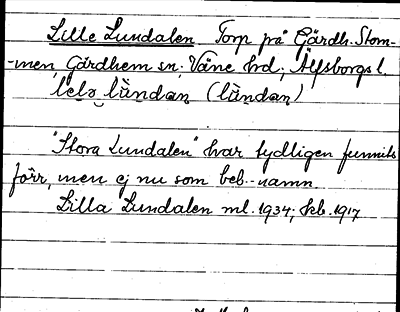 Lille Lundalen Torp på Gärdh. Stom-
-men, Gärdhem sn. Väne hd., Älfsborgs l.
lɩlə lùndan (lùndan)
"Stora Lundalen" har tydligen funnits
förr, men ej nu som beb.-namn
Lilla Lundalen ml. 1934; kb. 1917